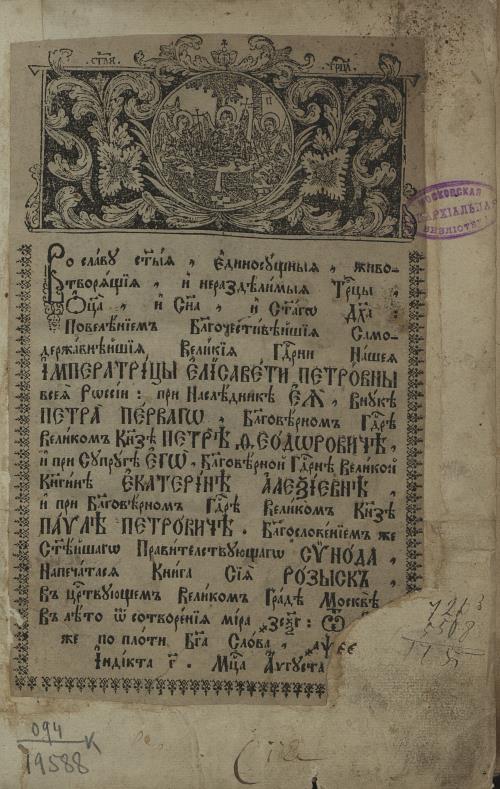 СТ҃АЯ ТРЦ҃А
Во сла́ву ст҃ы́я , є҆диносу́щныя , живо-
творя́щїя , и҆ неразде́лимыя Трⷪ҇цы ,
Ѻ҆ц҃а̀ , и҆ Сн҃а , и҆ Ст҃а́гѡ Дх҃а :
Повелѣ́нїемъ Бл҃гочести́вѣйшїя Само-
держа́внѣйшїя Вели́кїя Гдⷭ҇рни На́шея
І҆МПЕРАТРІ́ЦЫ Е҆ЛІСАВЕ́ТИ ПЕТРО́ВНЫ
всея̀ Рѡссі́и : при Наслѣ́дникѣ Є҆Ѧ̀ , Вну́кѣ
ПЕТРА̀ ПЕ́РВАГѠ , Бл҃говѣ́рномъ Гдⷭ҇рѣ
Вели́комъ Кн҃зѣ ПЕ́ТРѢ Ѳ҆ЕО́ДѠРОВИЧѢ ,
и҆ при Супру́гѣ Є҆ГѠ̀ , Бл҃говѣ́рной Гдⷭ҇рнѣ Вели́кой
Кн҃ги́нѣ Е҆КАТЕРІ́НѢ А҆ЛЕѮІ́ЕВНѢ ,
и҆ при Бл҃говѣ́рномъ Гдⷭ҇рѣ Вели́комъ Кн҃зѣ
ПА́ѴЛѢ ПЕТРО́ВИЧѢ . Бл҃гослове́нїемъ же
Ст҃ѣ́йшагѡ Прави́телствующагѡ СѴНО́ДА ,
Напеча́тася Кни́га Сїѧ̀ РО́ЗЫСК ,
въ ца́рствующемъ Вели́комъ Гра́дѣ Москвѣ̀
въ лѣ́то ѿ сотворе́нїя мі́ра ҂зсѯг҃ : Ѿ
же по пло́ти Бг҃а Сло́ва , ҂аѱ҃нє
І҆нді́кта г҃ . Мц҃а А҆́ѵгуста
МОСКОВСКАЯ
ЕПАРХІАЛЬНАЯ
БИБЛІОТЕКА
7263
5508
1755
094
19588 К